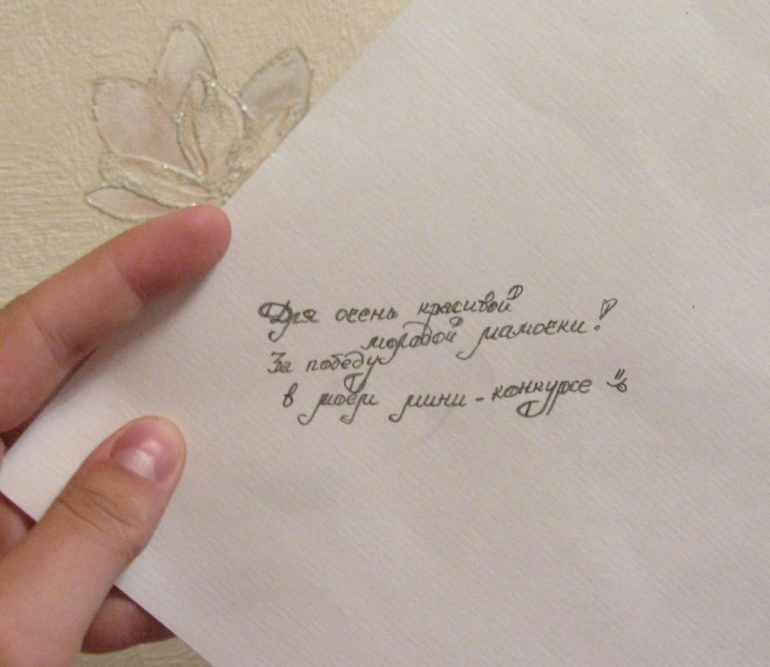 Для очень красивой
молодой мамочки!
За победу
в моём мини-конкурсе